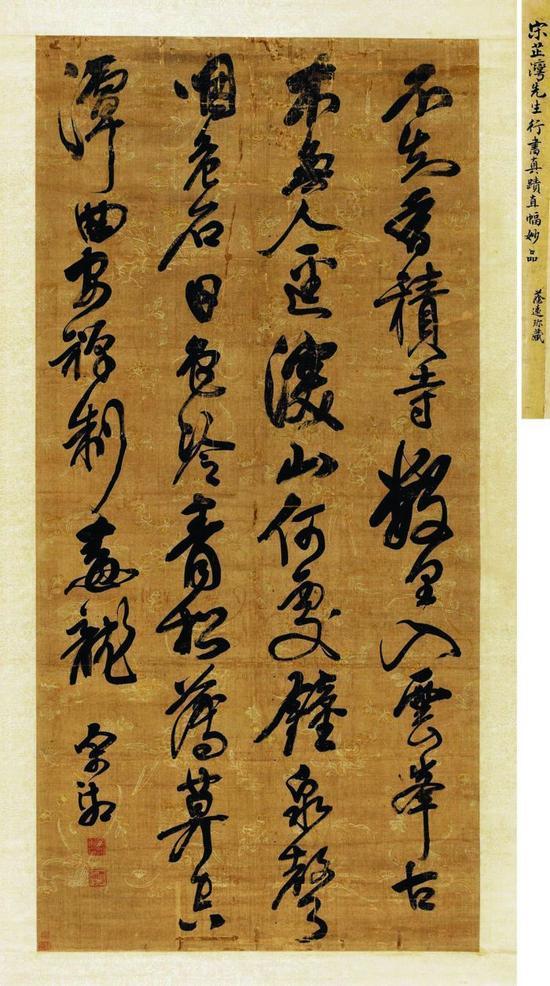 宋芷灣先生行書真蹟直幅妙品
珎藏
不知香積寺數里入雲峯古
木無人逕深山何處鐘泉聲
咽危石日色冷青松薄莫空
潭曲安禪制毒龍
宋湘